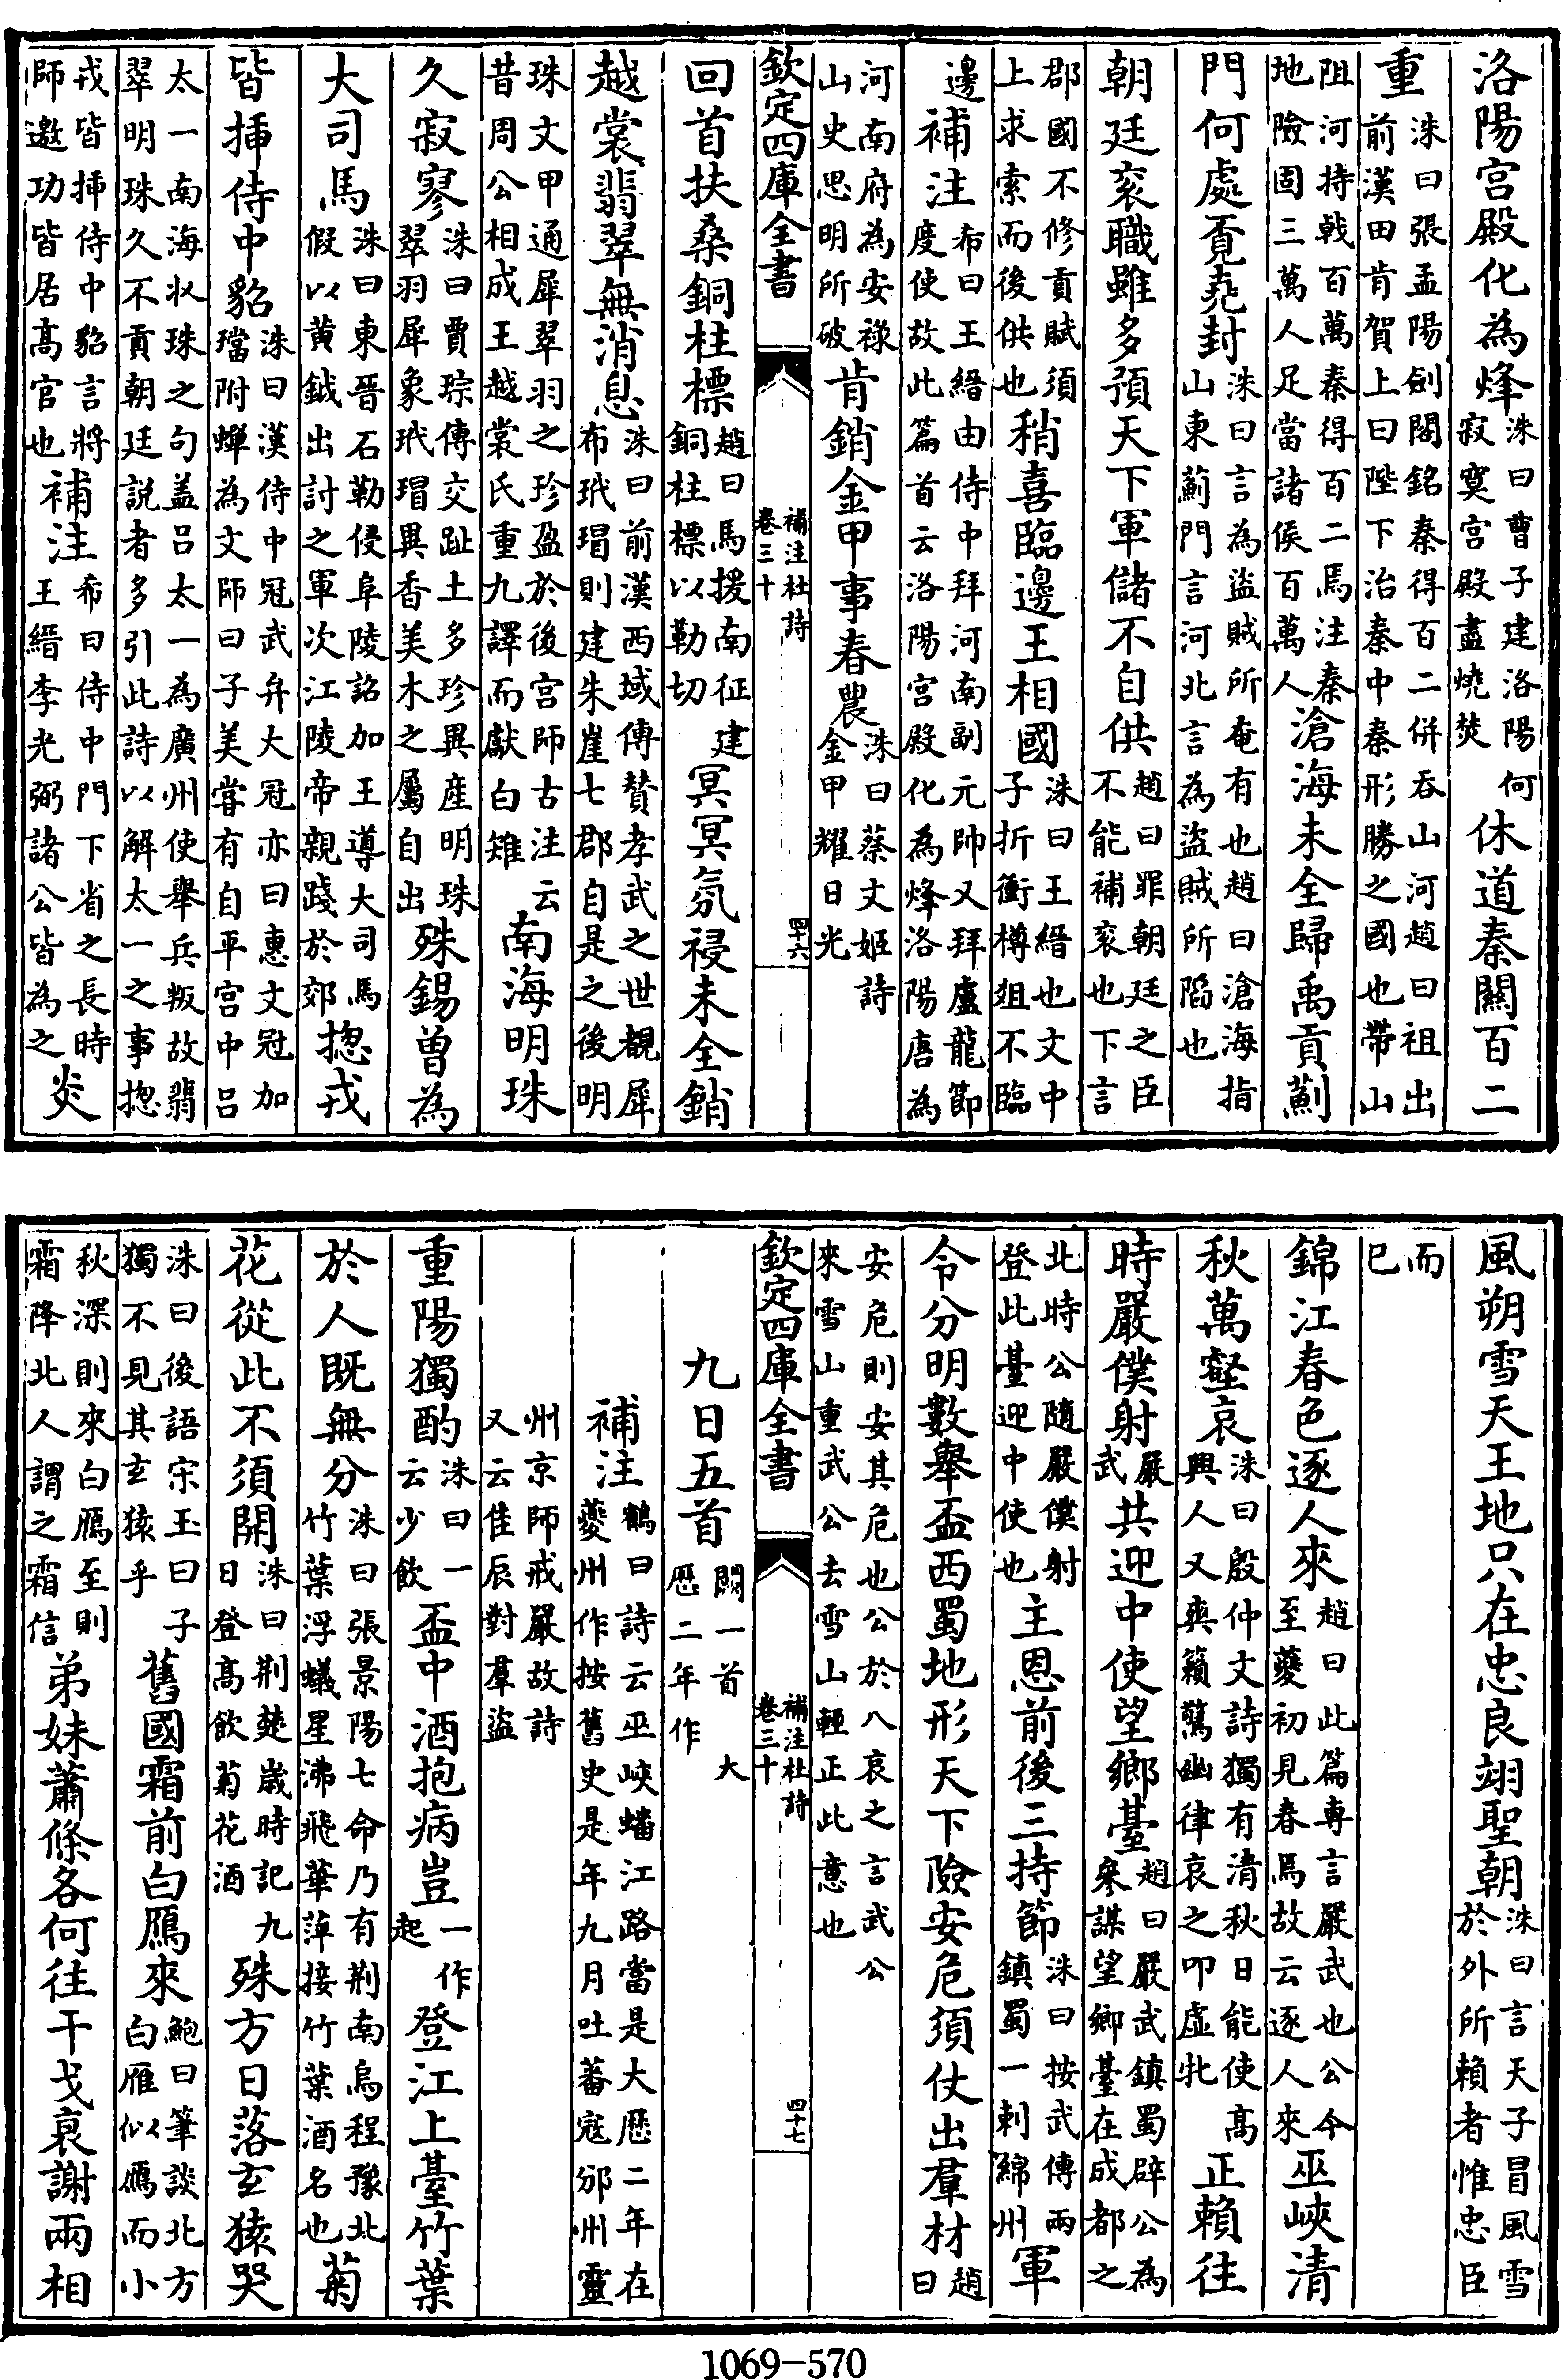 洛陽宫殿化為烽洙曰曹子建洛陽何寂寞宫殿盡燒焚休道秦關百二
重洙曰張孟陽劍閣銘秦得百二併吞山河趙曰祖出前漢田肯賀上曰陛下治秦中秦形勝之國也帶山
阻河持戟百萬秦得百二焉注秦地險固三萬人足當諸侯百萬人滄海未全歸禹貢薊
門何處覔堯封洙曰言為盜賊所奄有也趙曰滄海指山東薊門言河北言為盜賊所陷也
朝廷衮職雖多預天下軍儲不自供趙曰罪朝廷之臣不能補衮也下言
郡國不修貢賦須上求索而後供也稍喜臨邊王相國洙曰王縉也文中子折衝樽爼不臨
邊補注希曰王縉由侍中拜河南副元帥又拜盧龍節度使故此篇首云洛陽宫殿化為烽洛陽唐為
河南府為安祿山史思明所破肯銷金甲事春農洙曰蔡文姬詩金甲耀日光
欽定四庫全書 補注杜詩卷三十 四十六
回首扶桑銅柱標趙曰馬援南征建銅柱標以勒切冥冥氛祲未全銷
越裳翡翠無消息洙曰前漢西域傳贊孝武之世覩犀布玳瑁則建朱崖七郡自是之後明
珠文甲通犀翠羽之珍盈於後宫師古注云昔周公相成王越裳氏重九譯而獻白雉南海明珠
久寂寥洙曰賈琮傳交趾土多珍異産明珠翠羽犀象玳瑁異香美木之屬自出殊錫曾為
大司馬洙曰東晉石勒侵阜陵詔加王導大司馬假以黄鉞出討之軍次江陵帝親踐於郊揔戎
皆揷侍中貂洙曰漢侍中冠武弁大冠亦曰惠文冠加璫附蟬為文師曰子美嘗有自平宫中吕
太一南海收珠之句盖吕太一為廣州使舉兵叛故翡翠明珠久不貢朝廷説者多引此詩以解太一之事揔
戎皆揷侍中貂言將師邀功皆居髙官也補注希曰侍中門下省之長時王縉李光弼諸公皆為之炎
風朔雪天王地只在忠良翊聖朝洙曰言天子冒風雪於外所賴者惟忠臣
而已
錦江春色逐人來趙曰此篇専言嚴武也公今至夔初見春焉故云逐人來巫峽清
秋萬壑哀洙曰殷仲文詩獨有清秋日能使髙興人又爽籟驚幽律哀之叩虛牝正賴往
時嚴僕射嚴武共迎中使望鄉臺趙曰嚴武鎮蜀辟公為叅謀望鄉臺在成都之
北時公隨嚴僕射登此臺迎中使也主恩前後三持節洙曰按武傳兩鎮蜀一刺綿州軍
令分明數舉盃西蜀地形天下險安危須仗出羣材趙曰
安危則安其危也公於八哀之言武公來雪山重武公去雪山輕正此意也
欽定四庫全書 補注杜詩卷三十 四十七
九日五首闕一首大歴二年作
補注鶴曰詩云巫峽蟠江路當是大歴二年在夔州作按舊史是年九月吐蕃寇邠州靈
州京師戒嚴故詩又云佳辰對羣盜
重陽獨酌洙曰一云少飲盃中酒抱病豈一作起登江上臺竹葉
於人既無分洙曰張景陽七命乃有荆南烏程豫北竹葉浮蟻星沸飛華蓱接竹葉酒名也菊
花從此不須開洙曰荆楚歲時記九日登髙飲菊花酒殊方日落玄猿哭
洙曰後語宋玉曰子獨不見其玄猿乎舊國霜前白鴈來鮑曰筆談北方白雁似鴈而小
秋深則來白鴈至則霜降北人謂之霜信弟妹蕭條各何往干戈衰謝兩相
1069-570